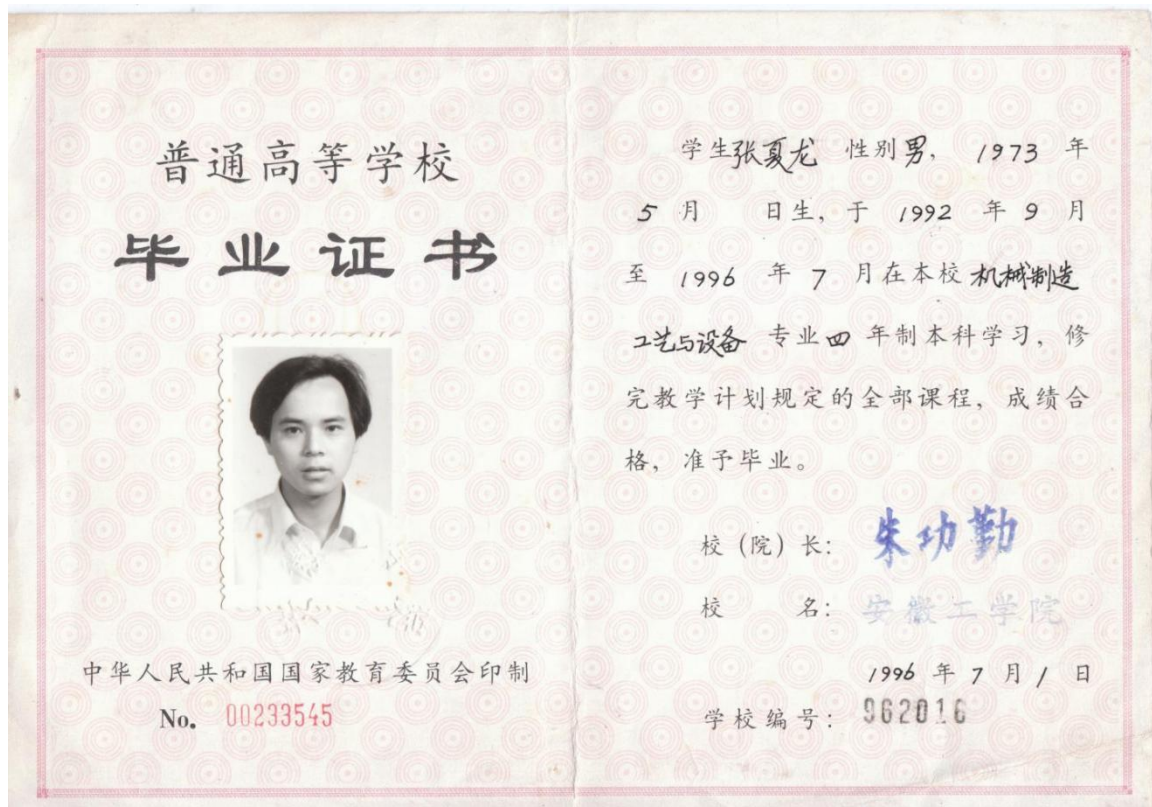 普通高等学校
毕业证书
中华人民共和国国家教育委员会印制
No. 00233545
学生张夏龙 性别男， 1973 年
5 月 日生，于 1992 年 9 月
至 1996 年 7 月在本校 机械制造
工艺与设备 专业四 年制本科学习，修
完教学计划规定的全部课程，成绩合
格，准予毕业。
校（院）长：朱功勤
校 名：安徽工学院
1996 年 7 月 1 日
学校编号：962016